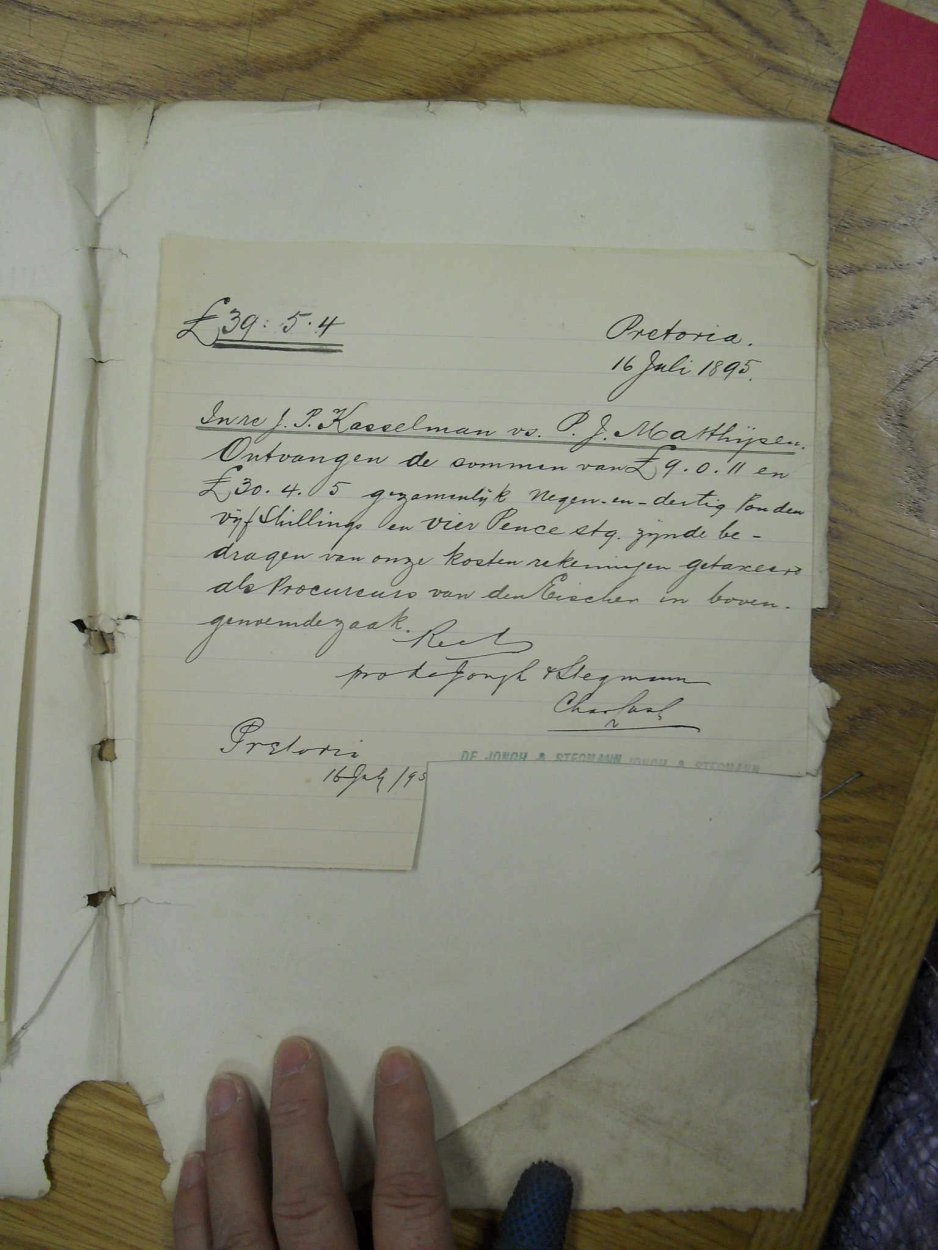 £39: 5. 4
Pretoria.
16 Juli 1895.
In re J. P. Kasselman vs. P. J. Matthijsen.
Ontvangen de sommen van £9. 0. 11 en
£30. 4. 5 gezamenlijk Negen-en-dertig Ponden
vijf Shillings en vier Pence stg. zijnde be-
dragen van onze kosten rekeningen getaxeerd
als Procureurs van den Eischer in boven-
genoemde zaak.
pro de Jongh & Stegmann
Pretoria
16 July /95
DE JONGH & STEGMANN JONGH & STEGMANN